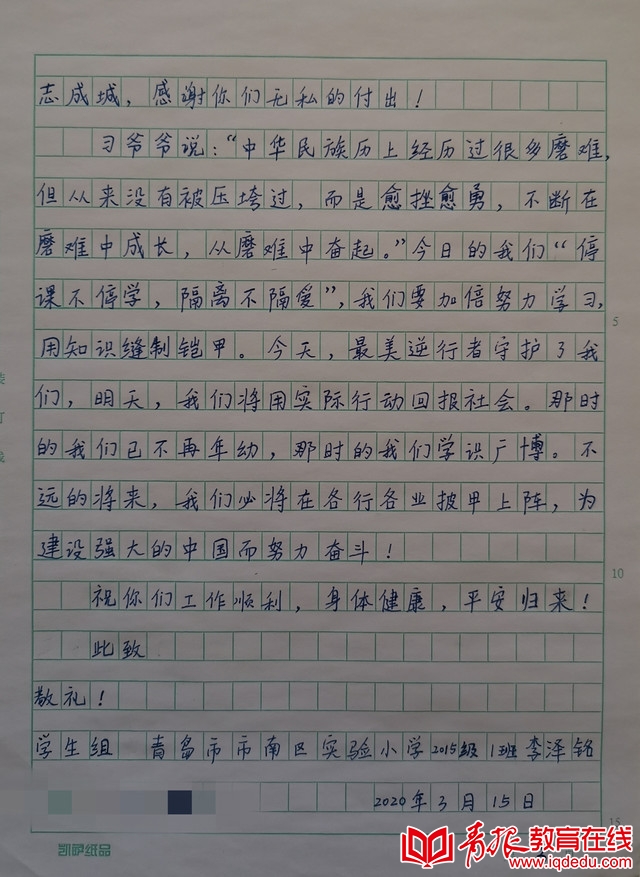 志成城，感谢你们无私的付出！
习爷爷说：“中华民族历上经历过很多磨难，
但从来没有被压垮过，而是愈挫愈勇，不断在
磨难中成长，从磨难中奋起。”今日的我们“停
课不停学，隔离不隔爱”，我们要加倍努力学习，
用知识缝制铠甲。今天，最美逆行者守护了我
5
们，明天，我们将用实际行动回报社会。那时
的我们已不再年幼，那时的我们学识广博。不
远的将来，我们必将在各行各业披甲上阵，为
建设强大的中国而努力奋斗！
10
祝你们工作顺利，身体健康，平安归来！
此致
敬礼！
学生组 青岛市市南区实验小学2015级1班李泽铭
2020年3月15日
15
凯萨纸品
青报教育在线
www.iqdedu.com